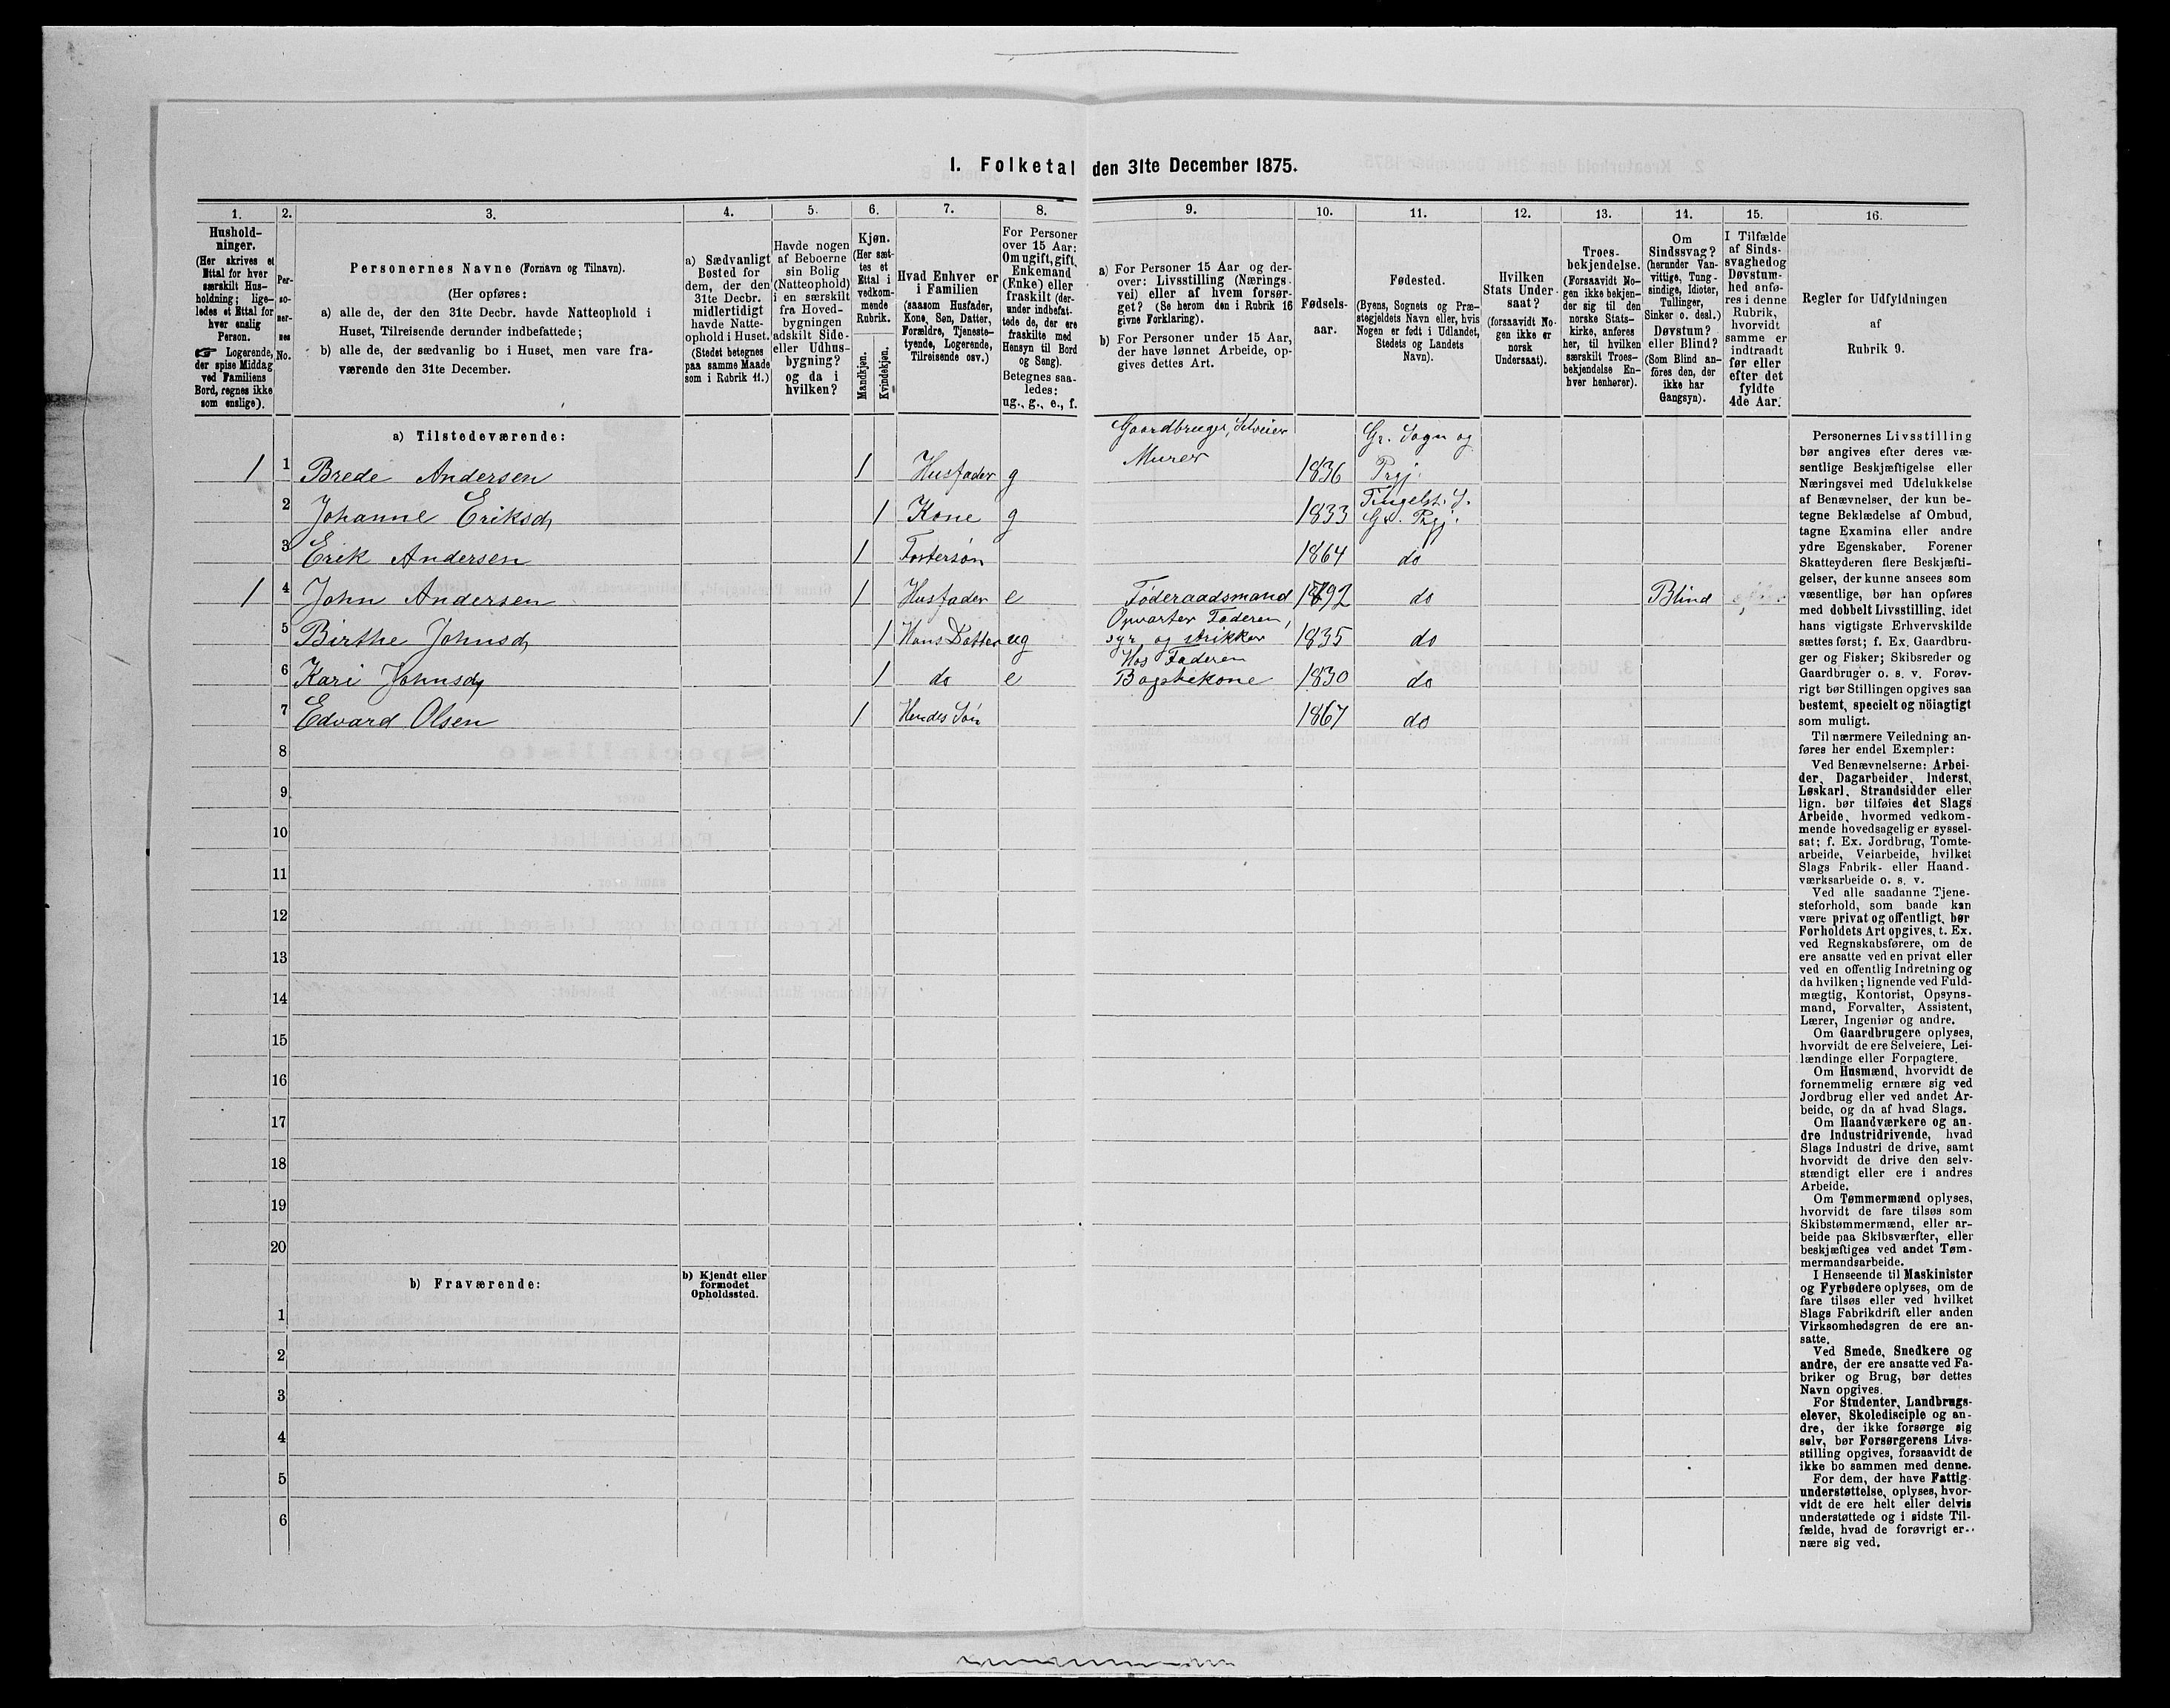 1. Folketal den 31te December 1875.
1. 2. 3. 4. 5. 6. 7. 8. 9. 10. 11. 12. 13. 14. 15. 16.
Hushold-
ninger.
(Her skrives et
Ettal for hver
særskilt Hus-
holdning; lige-
ledes et Ettal for
hver enslig
Person.
☞ Logerende,
der spise Middag
ved Familiens
Bord, regnes ikke
som enslige).
Per-
so-
ner-
nes
No.
Personernes Navne (Fornavn og Tilnavn).
(Her opføres:
a) alle de, der den 31te Decbr. havde Natteophold i
Huset, Tilreisende derunder indbefattede;
b) alle de, der sædvanlig bo i Huset, men vare fra-
værende den 31te December.
a) Sædvanligt
Bosted for
dem, der den
31te Decbr.
midlertidigt
havde Natte-
ophold i Huset.
(Stedet betegnes
paa samme Maade
som i Rubrik 11.)
Havde nogen
af Beboerne
sin Bolig
(Natteophold)
i en særskilt
fra Hoved-
bygningen
adskilt Side-
eller Udhus-
bygning?
og da i
hvilken?
Kjøn.
(Her sæt-
tes et
Ettal i
vedkom-
mende
Rubrik.
Mandkjøn.
Kvindekjøn.
Hvad Enhver er
i Familien
(saasom Husfader,
Kone, Søn, Datter,
Forældre, Tjeneste-
tyende, Logerende,
Tilreisende osv.)
For Personer
over 15 Aar:
Om ugift, gift,
Enkemand
(Enke) eller
fraskilt (der-
under indbefat-
tede de, der ere
fraskilte med
Hensyn til Bord
og Seng).
Betegnes saa-
ledes:
ug., g., e., f.
a) For Personer 15 Aar og der-
over: Livsstilling (Nærings-
vei) eller af hvem forsør-
get? (Se herom den i Rubrik 16
givne Forklaring).
b) For Personer under 15 Aar,
der have lønnet Arbeide, op-
gives dettes Art.
Fødsels-
aar.
Fødested.
(Byens, Sognets og Præ-
stegjeldets Navn eller, hvis
Nogen er født i Udlandet,
Stedets og Landets
Navn).
Hvilken
Stats Under-
saat?
(forsaavidt No-
gen ikke er
norsk
Undersaat).
Troes-
bekjendelse.
(Forsaavidt No-
gen ikke bekjen-
der sig til den
norske Stats-
kirke, anføres
her, til hvilken
særskilt Troes-
bekjendelse En-
hver henhører).
Om
Sindssvag?
(herunder Van-
vittige, Tung-
sindige, Idioter,
Tullinger,
Sinker o. desl.)
Døvstum?
eller Blind?
(Som Blind an-
føres den, der
ikke har
Gangsyn).
I Tilfælde
af Sinds-
svaghed og
Døvstum-
hed anfø-
res i denne
Rubrik,
hvorvidt
samme er
indtraadt
før eller
efter det
fyldte
4de Aar.
Regler for Udfyldningen
af
Rubrik 9.
a) Tilstedeværende:
Gaardbruger, Selveier Gr. Sogn og
1 1 Brede Andersen 1 Husfader g Murer 1836 Prgj.
Tingelst. S.
2 Johanne Eriksd 1 Kone g 1833 Gr. Prgj.
3 Erik Andersen 1 Fostersøn 1864 do
1 4 John Andersen 1 Husfader e Føderaadsmand 1792 do Blind
Opvarter Faderen,
5 Birthe Johnsd 1 Hans Datter ug syr og strikker 1835 do
Hos Faderen
6 Kari Johnsd 1 do e Bagstekone 1830 do
7 Edvard Olsen 1 Hendes Søn 1867 do
8
9
10
11
12
13
14
15
16
17
18
19
20
b) Fraværende:
b) Kjendt eller
formodet
Opholdssted.
1
2
3
4
5
6
Personernes Livsstilling
bør angives efter deres væ-
sentlige Beskjæftigelse eller
Næringsvei med Udelukkelse
af Benævnelser, der kun be-
tegne Beklædelse af Ombud,
tagne Examina eller andre
ydre Egenskaber. Forener
Skatteyderen flere Beskjæfti-
gelser, der kunne ansees som
væsentlige, bør han opføres
med dobbelt Livsstilling, idet
hans vigtigste Erhvervskilde
sættes først; f. Ex. Gaardbru-
ger og Fisker; Skibsreder og
Gaardbruger o. s. v. Forøv-
rigt bør Stillingen opgives saa
bestemt, specielt og nöiagtigt
som muligt.
Til nærmere Veiledning an-
føres her endel Exempler:
Ved Benævnelserne: Arbei-
der, Dagarbeider, Inderst,
Løskarl, Strandsidder eller
lign. bør tilføies det Slags
Arbeide, hvormed vedkom-
mende hovedsagelig er syssel-
sat; f. Ex. Jordbrug, Tomte-
arbeide, Veiarbeide, hvilket
Slags Fabrik- eller Haand-
værksarbeide o. s. v.
Ved alle saadanne Tjene-
steforhold, som baade kan
være privat og offentligt, bør
Forholdets Art opgives, t. Ex.
ved Regnskabsførere, om de
ere ansatte ved en privat eller
ved en offentlig Indretning og
da hvilken; lignende ved Fuld-
mægtig, Kontorist, Opsyns-
mand, Forvalter, Assistent,
Lærer, Ingeniør og andre.
Om Gaardbrugere oplyses,
hvorvidt de ere Selveiere, Lei-
lændinge eller Forpagtere.
Om Husmænd, hvorvidt de
fornemmelig ernære sig ved
Jordbrug eller ved andet Ar-
beide, og da af hvad Slags.
Om Haandværkere og an-
dre Industridrivende, hvad
Slags Industri de drive, samt
hvorvidt de drive den selv-
stændigt eller ere i andres
Arbeide.
Om Tømmermænd oplyses,
hvorvidt de fare tilsøs som
Skibstømmermænd, eller ar-
beide paa Skibsværfter, eller
beskjæftiges ved andet Tøm-
mermandsarbeide.
I Henseende til Maskinister
og Fyrbødere oplyses, om de
fare tilsøs eller ved hvilket
Slags Fabrikdrift eller anden
Virksomhedsgren de ere an-
satte.
Ved Smede, Snedkere og
andre, der ere ansatte ved Fa-
briker og Brug, bør dettes
Navn opgives.
For Studenter, Landbrugs-
elever, Skoledisciple og an-
dre, der ikke forsørge sig
selv, bør Forsørgerens Livs-
stilling opgives, forsaavidt de
ikke bo sammen med denne.
For dem, der have Fattig-
understøttelse, oplyses, hvor-
vidt de ere helt eller delvis
understøttede og i sidste Til-
fælde, hvad de forøvrigt er-
nære sig ved.